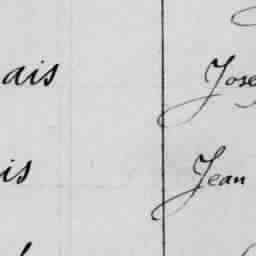 ais Jose
is Jean